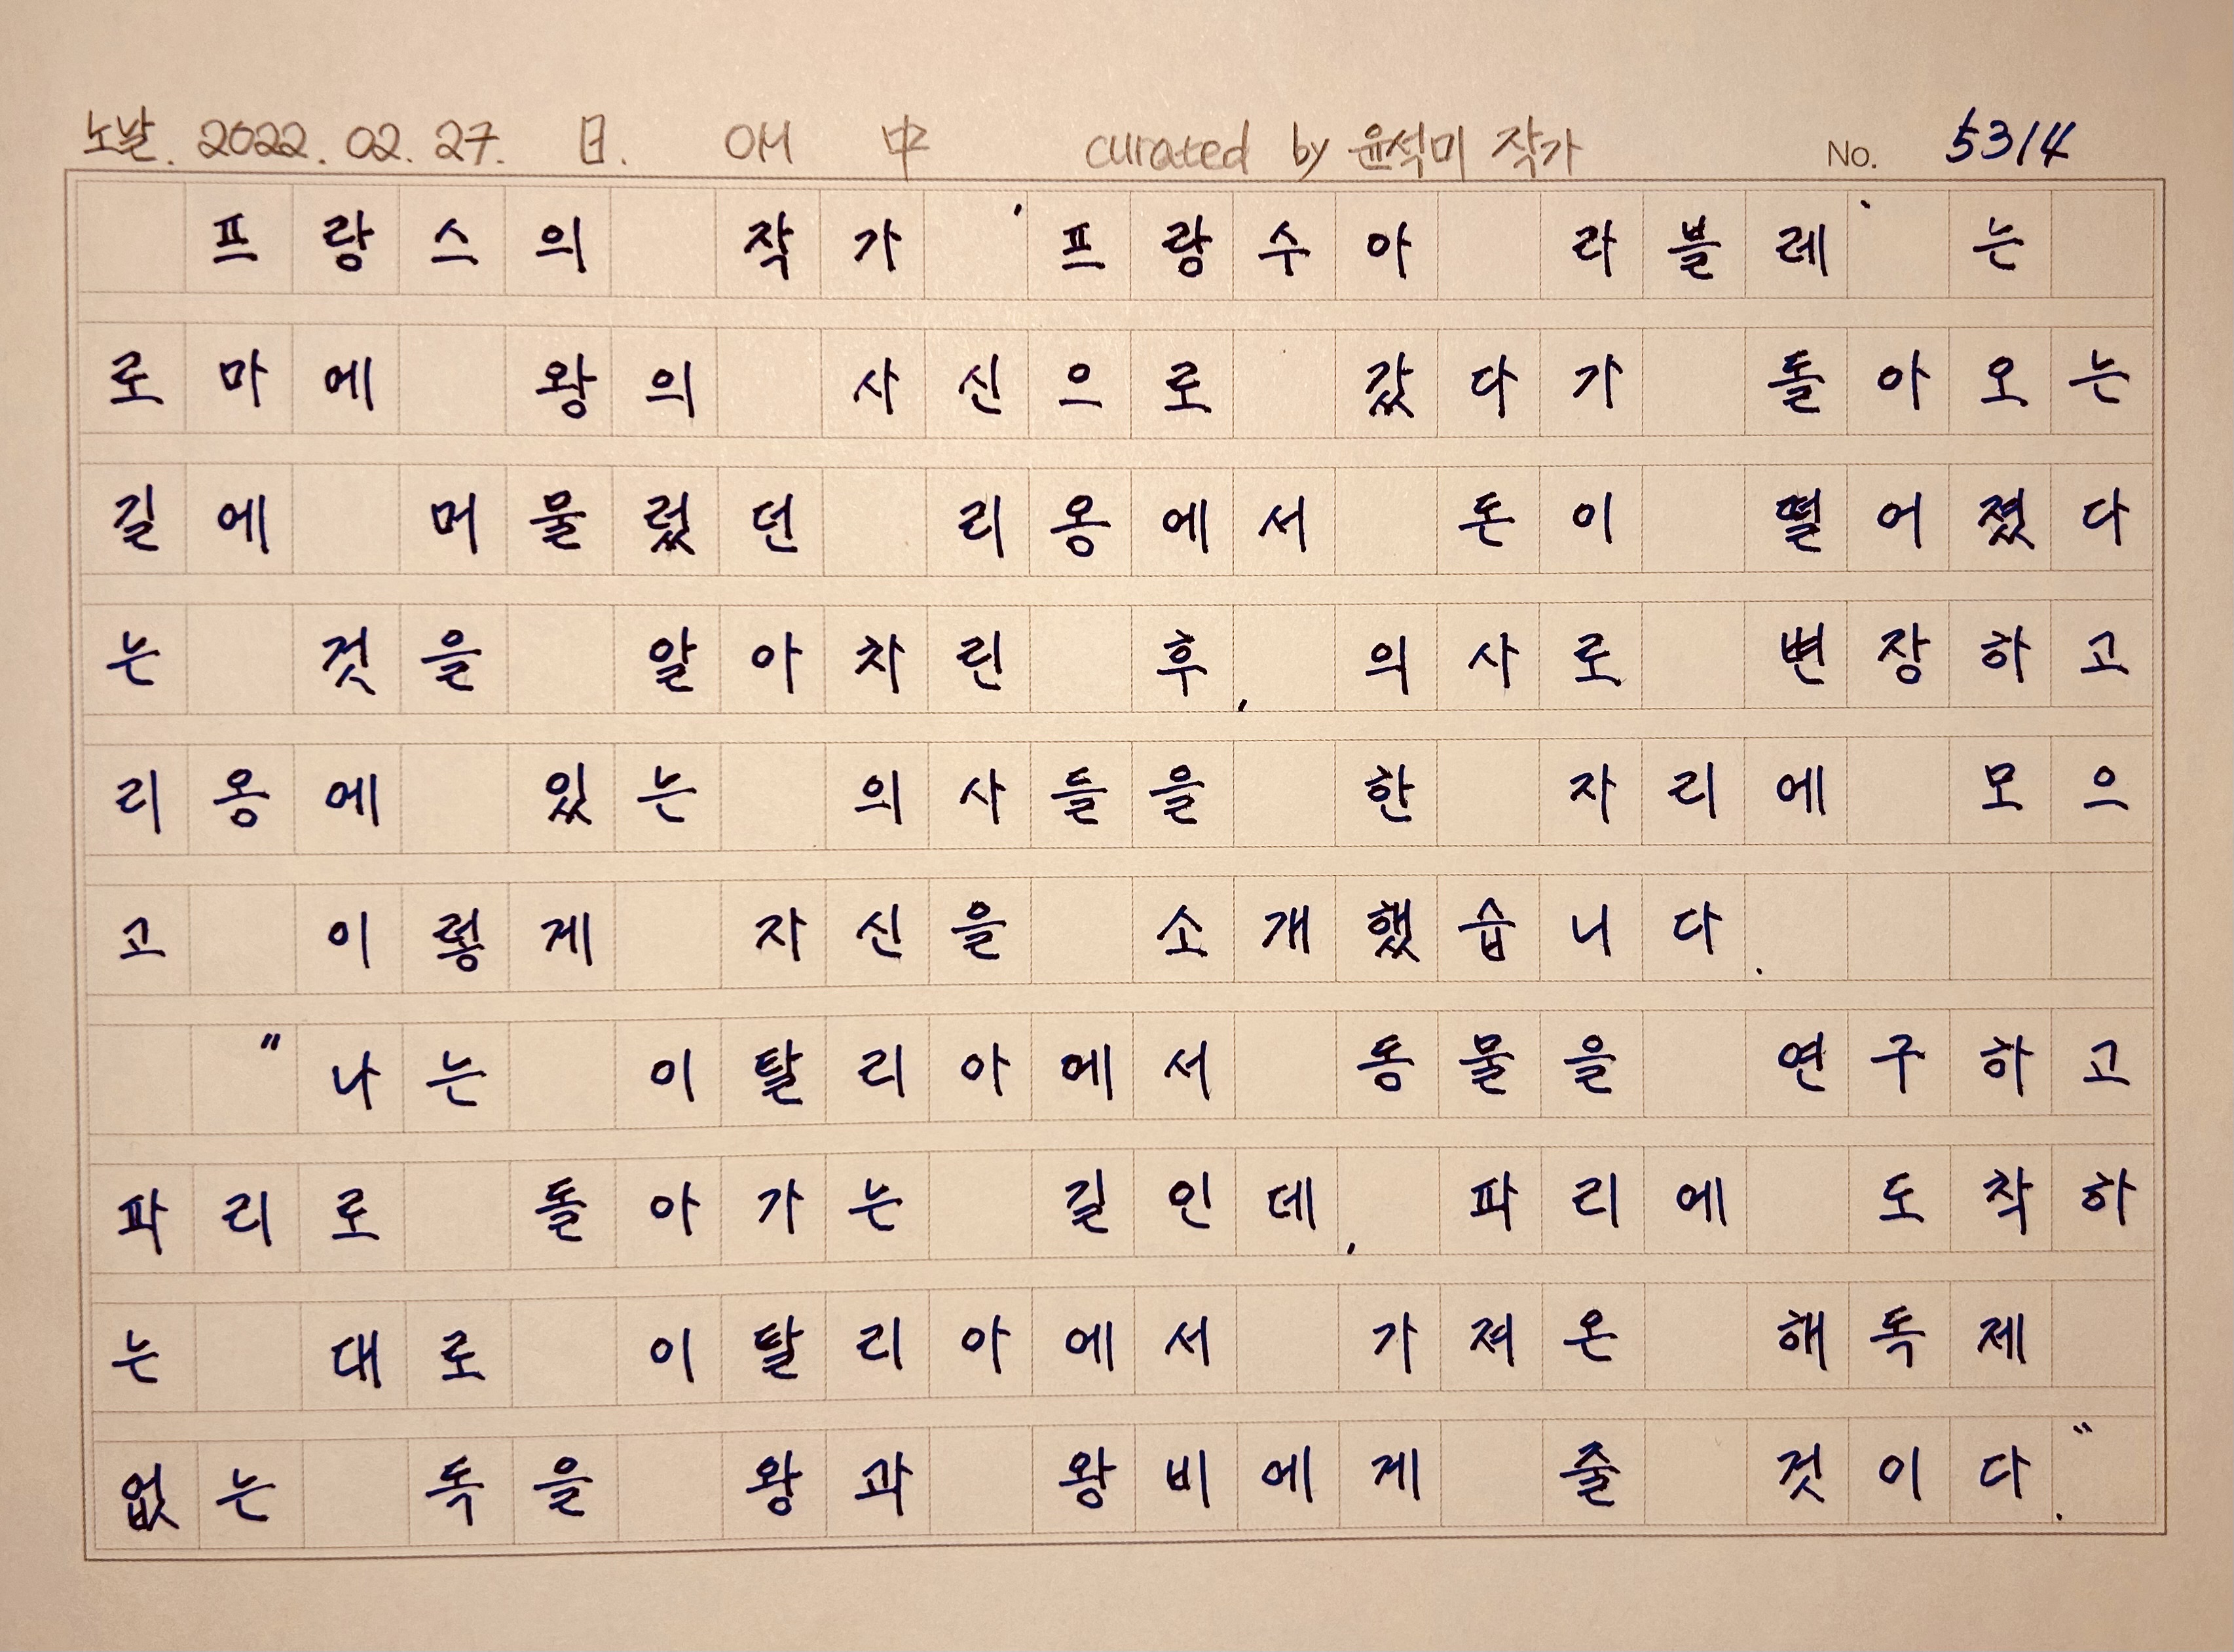 노날. 2022. 02. 27. 日. OH 中 curated by 윤석미 작가 No. 5314
프랑스의 작가 '프랑수아 라블레' 는
로마에 왕의 사신으로 갔다가 돌아오는
길에 머물렀던 리옹에서 돈이 떨어졌다
는 것을 알아차린 후, 의사로 변장하고
리옹에 있는 의사들을 한 자리에 모으
고 이렇게 자신을 소개했습니다.
"나는 이탈리아에서 동물을 연구하고
파리로 돌아가는 길인데, 파리에 도착하
는 대로 이탈리아에서 가져온 해독제
없는 독을 왕과 왕비에게 줄 것이다."